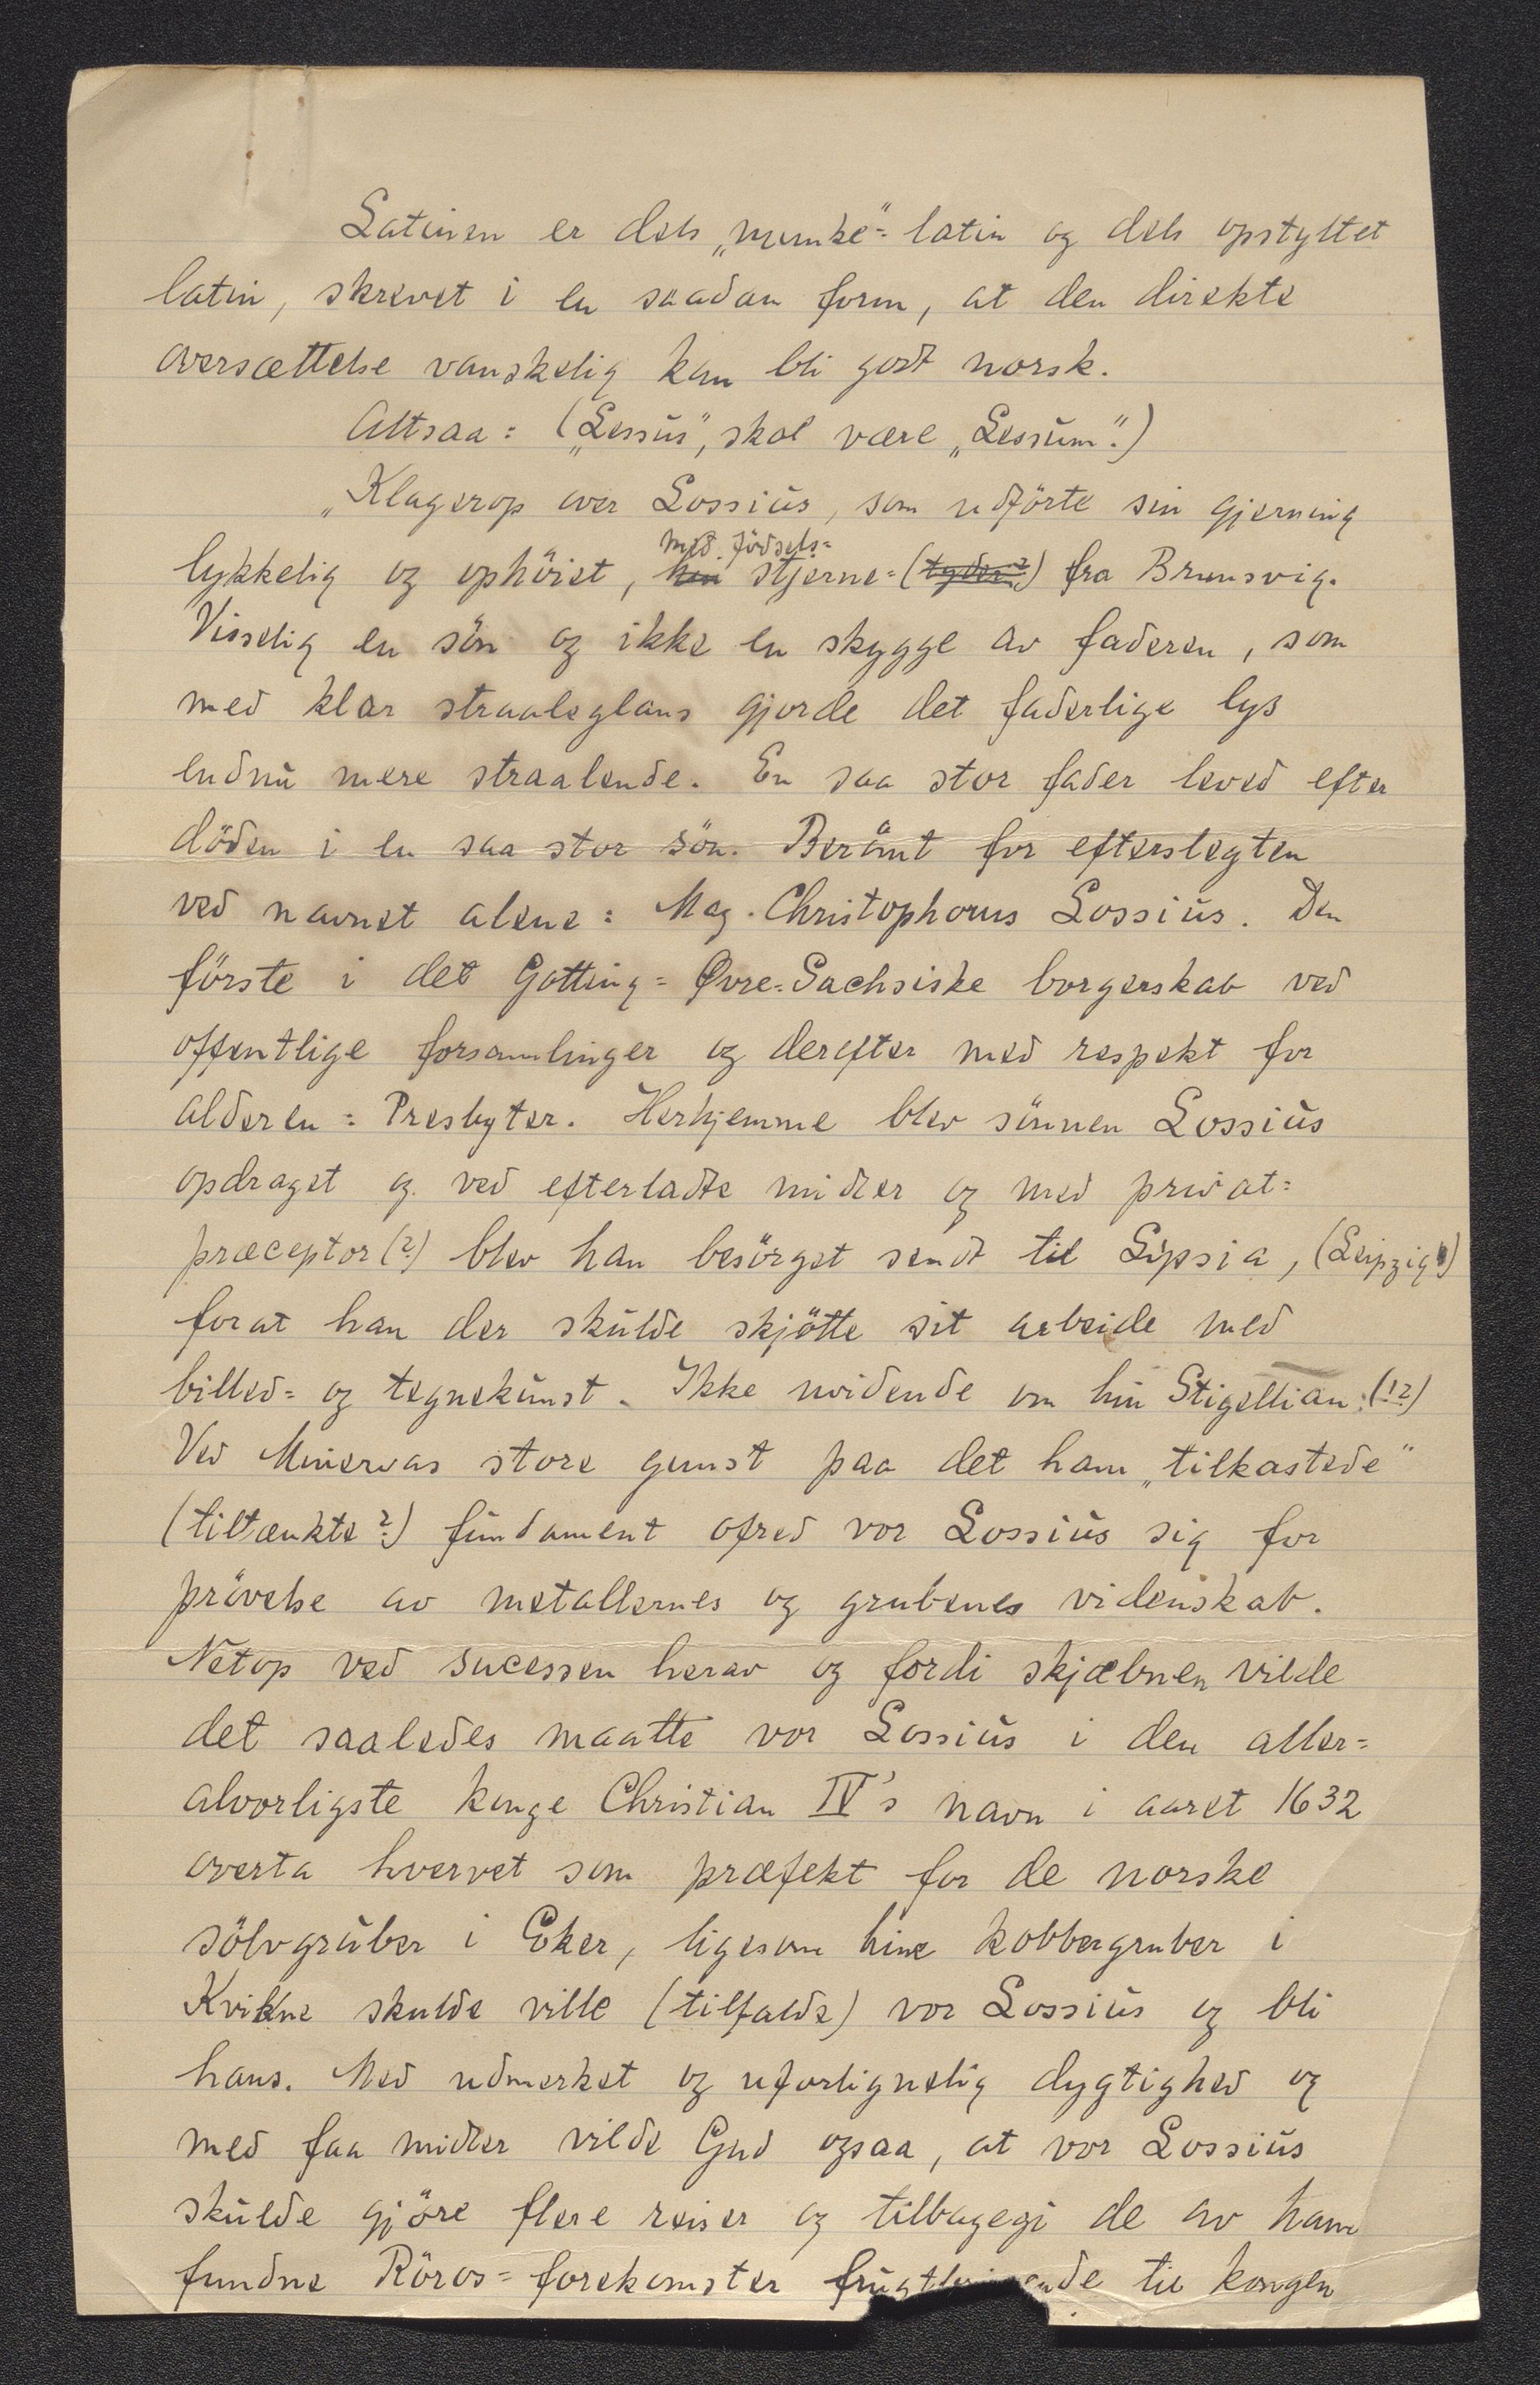 Latinen er dels „munke"= latin og dels opstyltet
latin, skrevet i en saadan form, at den direkte
oversættelse vanskelig kan bli godt norsk.
Altsaa: („Lessus", skal være „Lessum".)
„Klagerop over Lossius, som udförte sin gjerning
lykkelig og ophöiet, med födsels=
stjerne=(tyder?) fra Brunsvig.
Visselig en sön og ikke en skygge av faderen, som
med klar straaleglans gjorde det faderlige lys
endnu mere straalende. En saa stor fader leved efter
döden i en saa stor sön. Berömt for efterslegten
ved navnet alene: Mag. Christophorus Lossius. Den
förste i det Gotting= Øvre-Sachsiske borgerskab ved
offentlige forsamlinger og derefter med respekt for
alderen: Presbyter. Herhjemme blev sönnen Lossius
opdraget og ved efterladte midler og med privat=
præceptor (?) blev han besörget sendt til Lipsia, (Leipzig)
forat han der skulde skjötte sit arbeide med
billed= og tegnekunst. Ikke uvidende om hin Stigellian. (!?)
Ved Minervas store gunst paa det ham „tilkastede"
(tiltænkte?) fundament ofred vor Lossius sig for
prövelse av metallernes og grubenes videnskab.
Netop ved sucessen herav og fordi skjæbnen vilde
det saaledes maatte vor Lossius i den aller=
alvorligste konge Christian IV's navn i aaret 1632
overta hvervet som præfekt for de norske
sölvgruber i Eker, ligesom hine kobbergruber i
Kvikne skulde ville (tilfalde) vor Lossius og bli
hans. Med udmerket og uforlignelig dygtighed og
med faa midler vilde Gud ogsaa, at vor Lossius
skulde gjöre flere reiser og tilbagegi de av ham
fundne Röros= forekomster til kongen